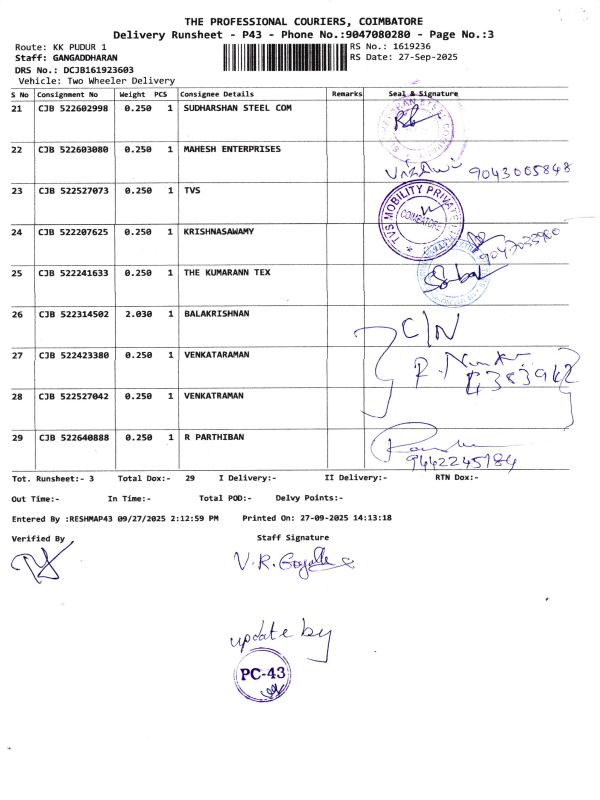 THE PROFESSIONAL COURIERS, COIMBATORE
Delivery Runsheet - P43 - Phone No.:9047080280 - Page No.:3
Route: KK PUDUR 1 RS No.: 1619236
Staff: GANGADDHARAN RS Date: 27-Sep-2025
DRS No.: DCJB161923603
Vehicle: Two Wheeler Delivery
S No Consignment No Weight PCS Consignee Details Remarks Seal & Signature
21 CJB 522602998 0.250 1 SUDHARSHAN STEEL COM
22 CJB 522603080 0.250 1 MAHESH ENTERPRISES
9043005848
23 CJB 522527073 0.250 1 TVS
TVS MOBILITY PRIVATE
COIMBATORE
24 CJB 522207625 0.250 1 KRISHNASAWAMY
25 CJB 522241633 0.250 1 THE KUMARANN TEX
26 CJB 522314502 2.030 1 BALAKRISHNAN
C/N
27 CJB 522423380 0.250 1 VENKATARAMAN
28 CJB 522527042 0.250 1 VENKATRAMAN
29 CJB 522640888 0.250 1 R PARTHIBAN
9442245184
Tot. Runsheet:- 3 Total Dox:- 29 I Delivery:- II Delivery:- RTN Dox:-
Out Time:- In Time:- Total POD:- Delvy Points:-
Entered By :RESHMAP43 09/27/2025 2:12:59 PM Printed On: 27-09-2025 14:13:18
Verified By Staff Signature
update by
PC-43